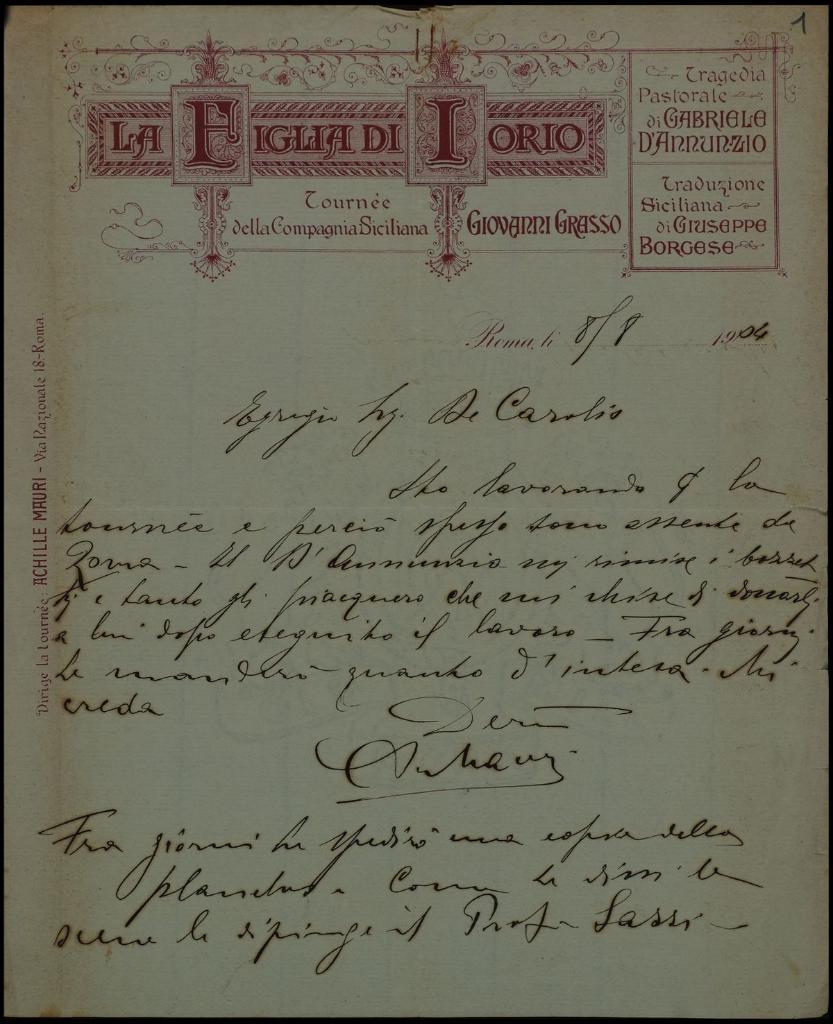 1
LA FIGLIA DI IORIO
Tournée
della Compagnia Siciliana GIOVANNI GRASSO
Tragedia
Pastorale
di GABRIELE
D'ANNUNZIO
Traduzione
Siciliana
di GIUSEPPE
BORGESE
Dirige la tournée: ACHILLE MAURI - Via Nazionale 18-Roma.
Roma, li 8/8 1904
Egregio Sig. De Carolis
Sto lavorando p la
tournée e perciò spesso sono assente da
Roma - Il D'Annunzio mi rimise i bozzet
ti e tanto gli piacquero che mi chise di donarli
a lui dopo eseguito il lavoro - Fra giorni
Le manderò quanto d'intesa. Mi
creda
Dev
AMauri
Fra giorni Le spedirò una copia della
Come Le dissi le
scene le dipinge il Prof.